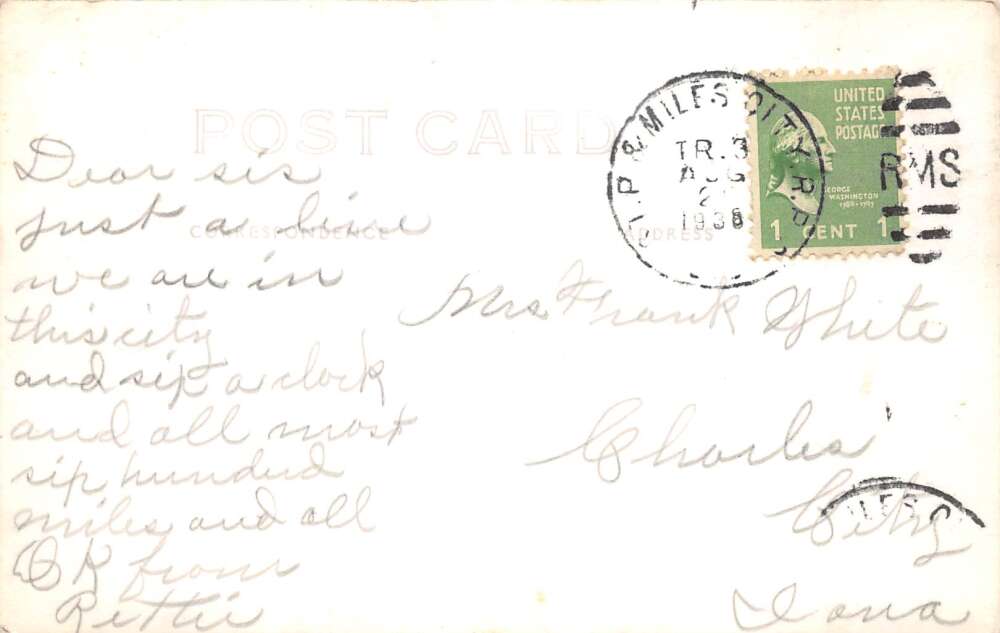 POST CARD
CORRESPONDENCE
ADDRESS
Dear sis
just a line
we are in
this city
and six o clock
and all most
six hundred
miles and all
OK from
Rettie
Mrs Frank White
Charles
City
Iowa
P & MILES CITY R.P.
TR.3
AUG
2
1938
RMS
UNITED
STATES
POSTAGE
GEORGE
WASHINGTON
1789-1797
1 CENT 1
MILES C